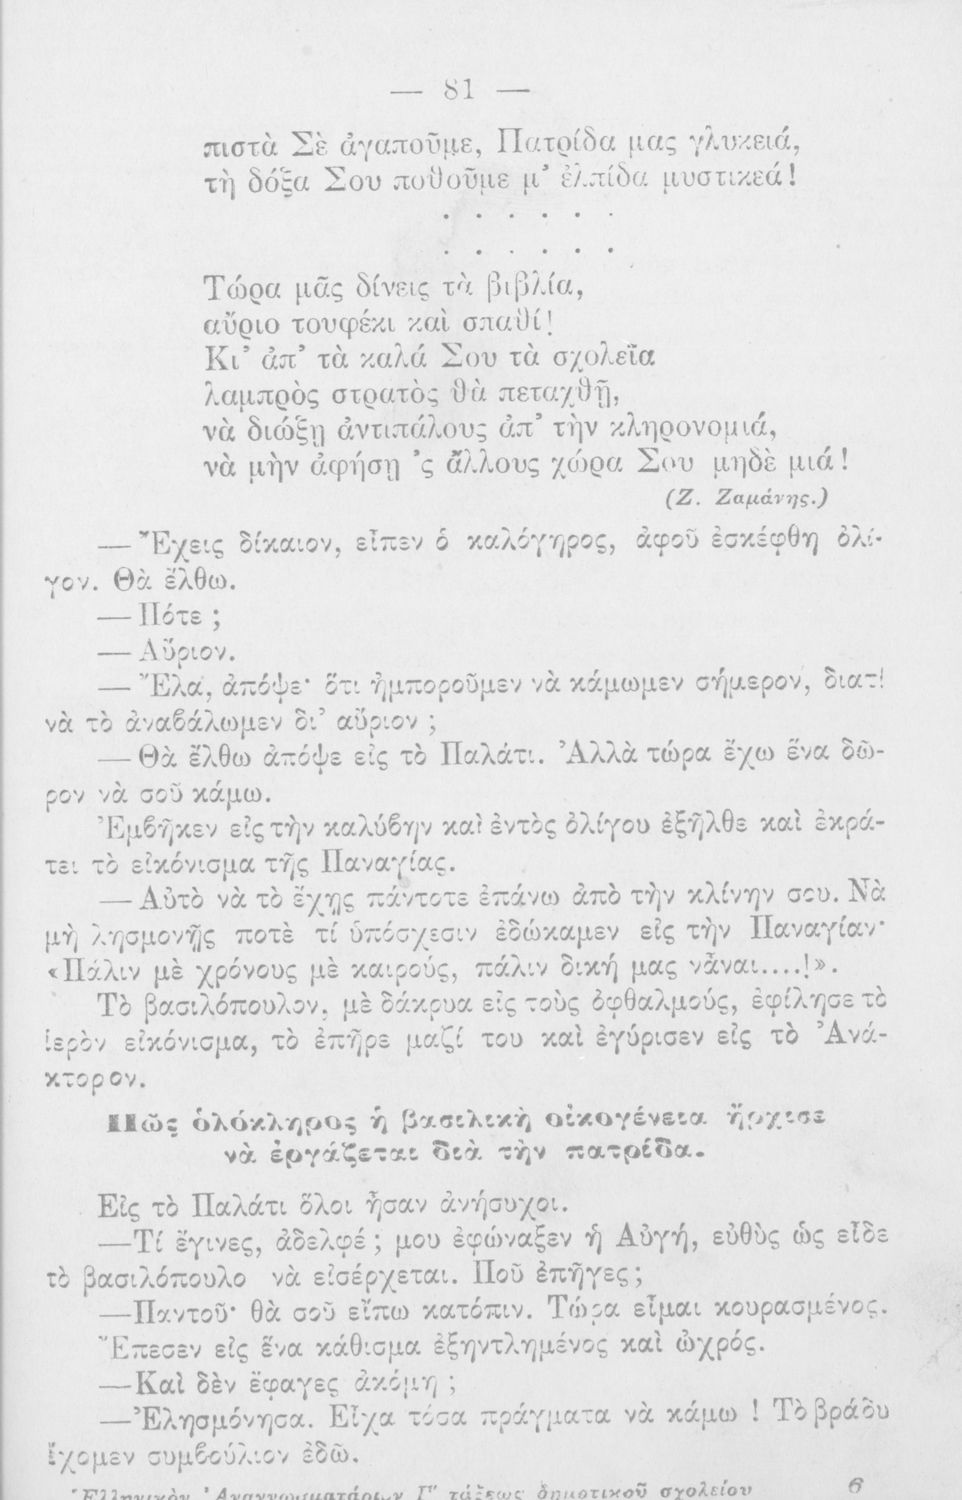 — 81 —
πιστὰ Σὲ ἀγαποῦμε, Πατρίδα μας γλυκειά,
τὴ δόξα Σου ποθοῦμε μ’ ἐλπίδα μυστικεά!
. . . . . .
. . . . . .
Τώρα μᾶς δίνεις τὰ βιβλία,
αὔριο τουφέκι καὶ σπαθί!
Κι’ ἀπ’ τὰ καλά Σου τὰ σχολεῖα
λαμπρὸς στρατὸς θὰ πεταχθῇ,
νὰ διώξῃ ἀντιπάλους ἀπ’ τὴν κληρονομιά,
νὰ μὴν ἀφήσῃ ’ς ἄλλους χώρα Σου μηδὲ μιά!
(Ζ. Ζαμάνης.)
— Ἔχεις δίκαιον, εἶπεν ὁ καλόγηρος, ἀφοῦ ἐσκέφθη ὀλί-
γον. Θὰ ἔλθω.
— Πότε ;
— Αὔριον.
— Ἔλα, ἀπόψε· ὅτι ἠμποροῦμεν νὰ κάμωμεν σήμερον, διατί
νὰ τὸ ἀναβάλωμεν δι’ αὔριον ;
— Θὰ ἔλθω ἀπόψε εἰς τὸ Παλάτι. Ἀλλὰ τώρα ἔχω ἕνα δῶ-
ρον νὰ σοῦ κάμω.
Ἐμβῆκεν εἰς τὴν καλύβην καὶ ἐντὸς ὀλίγου ἐξῆλθε καὶ ἐκρά-
τει τὸ εἰκόνισμα τῆς Παναγίας.
— Αὐτὸ νὰ τὸ ἔχῃς πάντοτε ἐπάνω ἀπὸ τὴν κλίνην σου. Νὰ
μὴ λησμονῇς ποτὲ τί ὑπόσχεσιν ἐδώκαμεν εἰς τὴν Παναγίαν·
«Πάλιν μὲ χρόνους μὲ καιρούς, πάλιν δική μας νἆναι....!».
Τὸ βασιλόπουλον, μὲ δάκρυα εἰς τοὺς ὀφθαλμούς, ἐφίλησε τὸ
ἱερὸν εἰκόνισμα, τὸ ἐπῆρε μαζί του καὶ ἐγύρισεν εἰς τὸ Ἀνά-
κτορον.
Πῶς ὁλόκληρος ἡ βασιλικὴ οἰκογένεια ἤρχισε
νὰ ἐργάζεται διὰ τὴν πατρίδα.
Εἰς τὸ Παλάτι ὅλοι ἦσαν ἀνήσυχοι.
—Τί ἔγινες, ἀδελφέ ; μου ἐφώναξεν ἡ Αὐγή, εὐθὺς ὡς εἶδε
τὸ βασιλόπουλο νὰ εἰσέρχεται. Ποῦ ἐπῆγες ;
—Παντοῦ· θὰ σοῦ εἴπω κατόπιν. Τώρα εἶμαι κουρασμένος.
Ἔπεσεν εἰς ἕνα κάθισμα ἐξηντλημένος καὶ ὠχρός.
—Καὶ δὲν ἔφαγες ἀκόμη ;
—Ἐλησμόνησα. Εἶχα τόσα πράγματα νὰ κάμω ! Τὸ βράδυ
ἔχομεν συμβούλιον ἐδῶ.
Ἑλληνικὸν Ἀναγνωσματάριον Γ΄ τάξεως δημοτικοῦ σχολείου 6